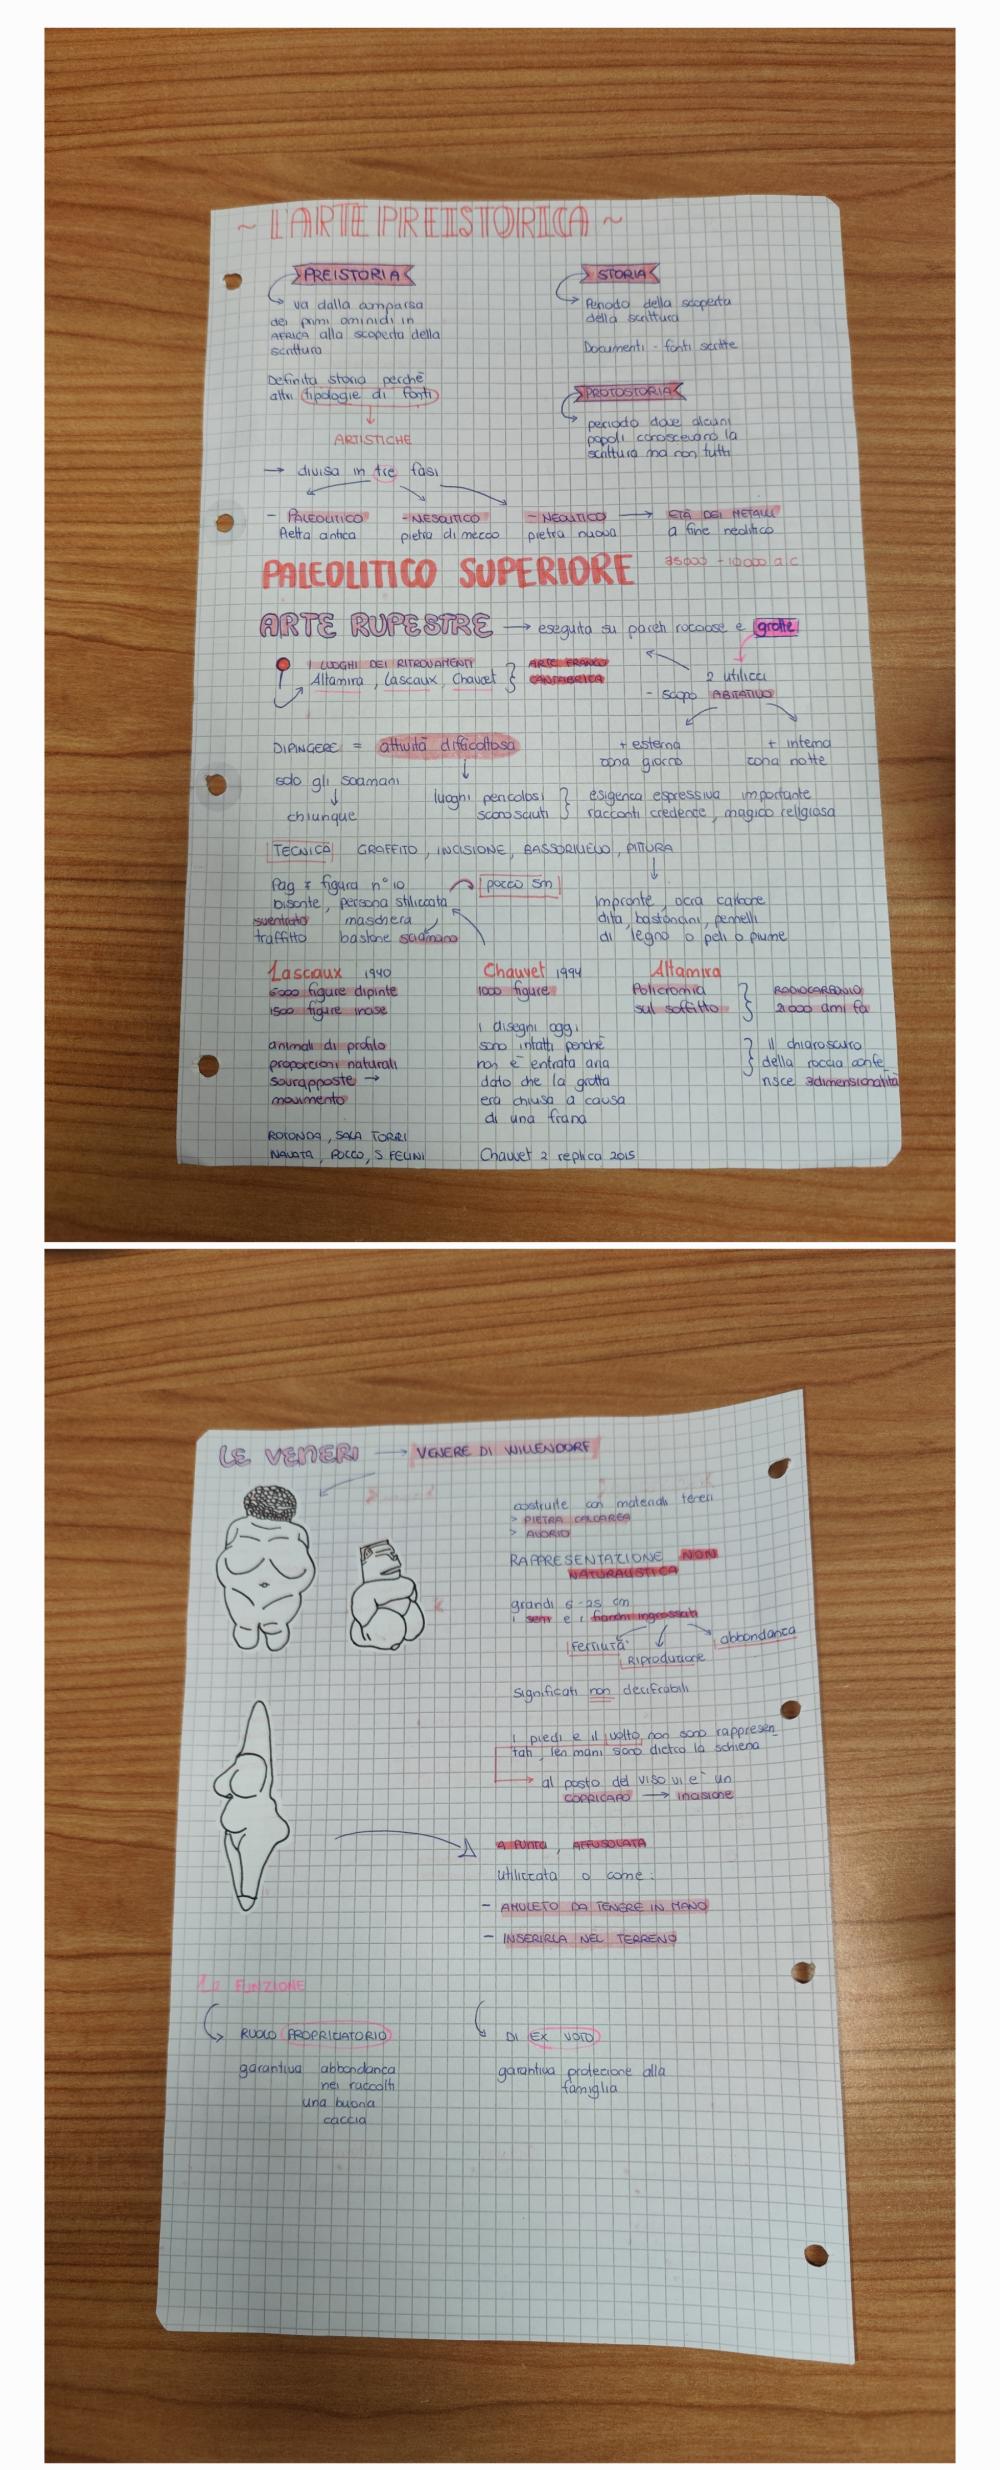 ~ L'ARTE PREISTORICA ~
PREISTORIA
va dalla comparsa
dei primi ominidi in
AFRICA alla scoperta della
scrittura
Definita storia perchè
altri tipologie di fonti
ARTISTICHE
→ divisa in tre fasi
STORIA
Periodo della scoperta
della scrittura
Documenti - fonti scritte
PROTOSTORIA
periodo dove alcuni
popoli conoscevano la
scrittura ma non tutti
- PALEOLITICO - MESOLITICO - NEOLITICO → ETÀ DEI METALLI
Pietra antica pietra di mezzo pietra nuova a fine neolitico
PALEOLITICO SUPERIORE 35000 - 10000 a.C
ARTE RUPESTRE → eseguita su pareti rocciose e grotte
I LUOGHI DEI RITROVAMENTI
Altamira, Lascaux, Chauvet } ARTE FRANCO
CANTABRICA
2 utilizzi
- scopo ABITATIVO
+ esterna
zona giorno
+ interna
zona notte
DIPINGERE = attività difficoltosa
solo gli sciamani
↓
chiunque
luoghi pericolosi } esigenza espressiva importante
sconosciuti } racconti credenze, magico religiosa
TECNICA GRAFFITO, INCISIONE, BASSORILIEVO, PITTURA
Pag 7 figura n° 10
bisonte, persona stilizzata
sventrato maschera
traffitto bastone sciamano
pozzo 5m
Impronte, ocra carbone
dita, bastoncini, pennelli
di legno o peli o piume
Lascaux 1940
6000 figure dipinte
1500 figure incise
animali di profilo
proporzioni naturali
sovrapposte →
movimento
ROTONDA, SALA TORRI
NAVATA, POZZO, S FELINI
Chauvet 1994
1000 figure
i disegni oggi
sono intatti perchè
non è entrata aria
dato che la grotta
era chiusa a causa
di una frana
Chauvet 2 replica 2015
Altamira
Policromia } RADIOCARBONIO
sul soffitto } 21000 anni fa
} il chiaroscuro
della roccia confe_
risce 3dimensionalità
LE VENERI → VENERE DI WILLENDORF
costruite con materiali teneri
> PIETRA CALCAREA
> AVORIO
RAPPRESENTAZIONE NON
NATURALISTICA
grandi 6-25 cm
i seni e i fianchi ingrossati
Fertilità
Riproduzione
abbondanza
significati non decifrabili
i piedi e il volto, non sono rappresen_
tati, len mani sono dietro la schiena
→ al posto del viso vi è un
COPRICAPO → incisione
A PUNTA, AFFUSOLATA
utilizzata o come:
- AMULETO DA TENERE IN MANO
- INSERIRLA NEL TERRENO
La FUNZIONE
RUOLO PROPRIZIATORIO
garantiva abbondanza
nei raccolti
una buona
caccia
DI EX VOTO
garantiva protezione alla
famiglia